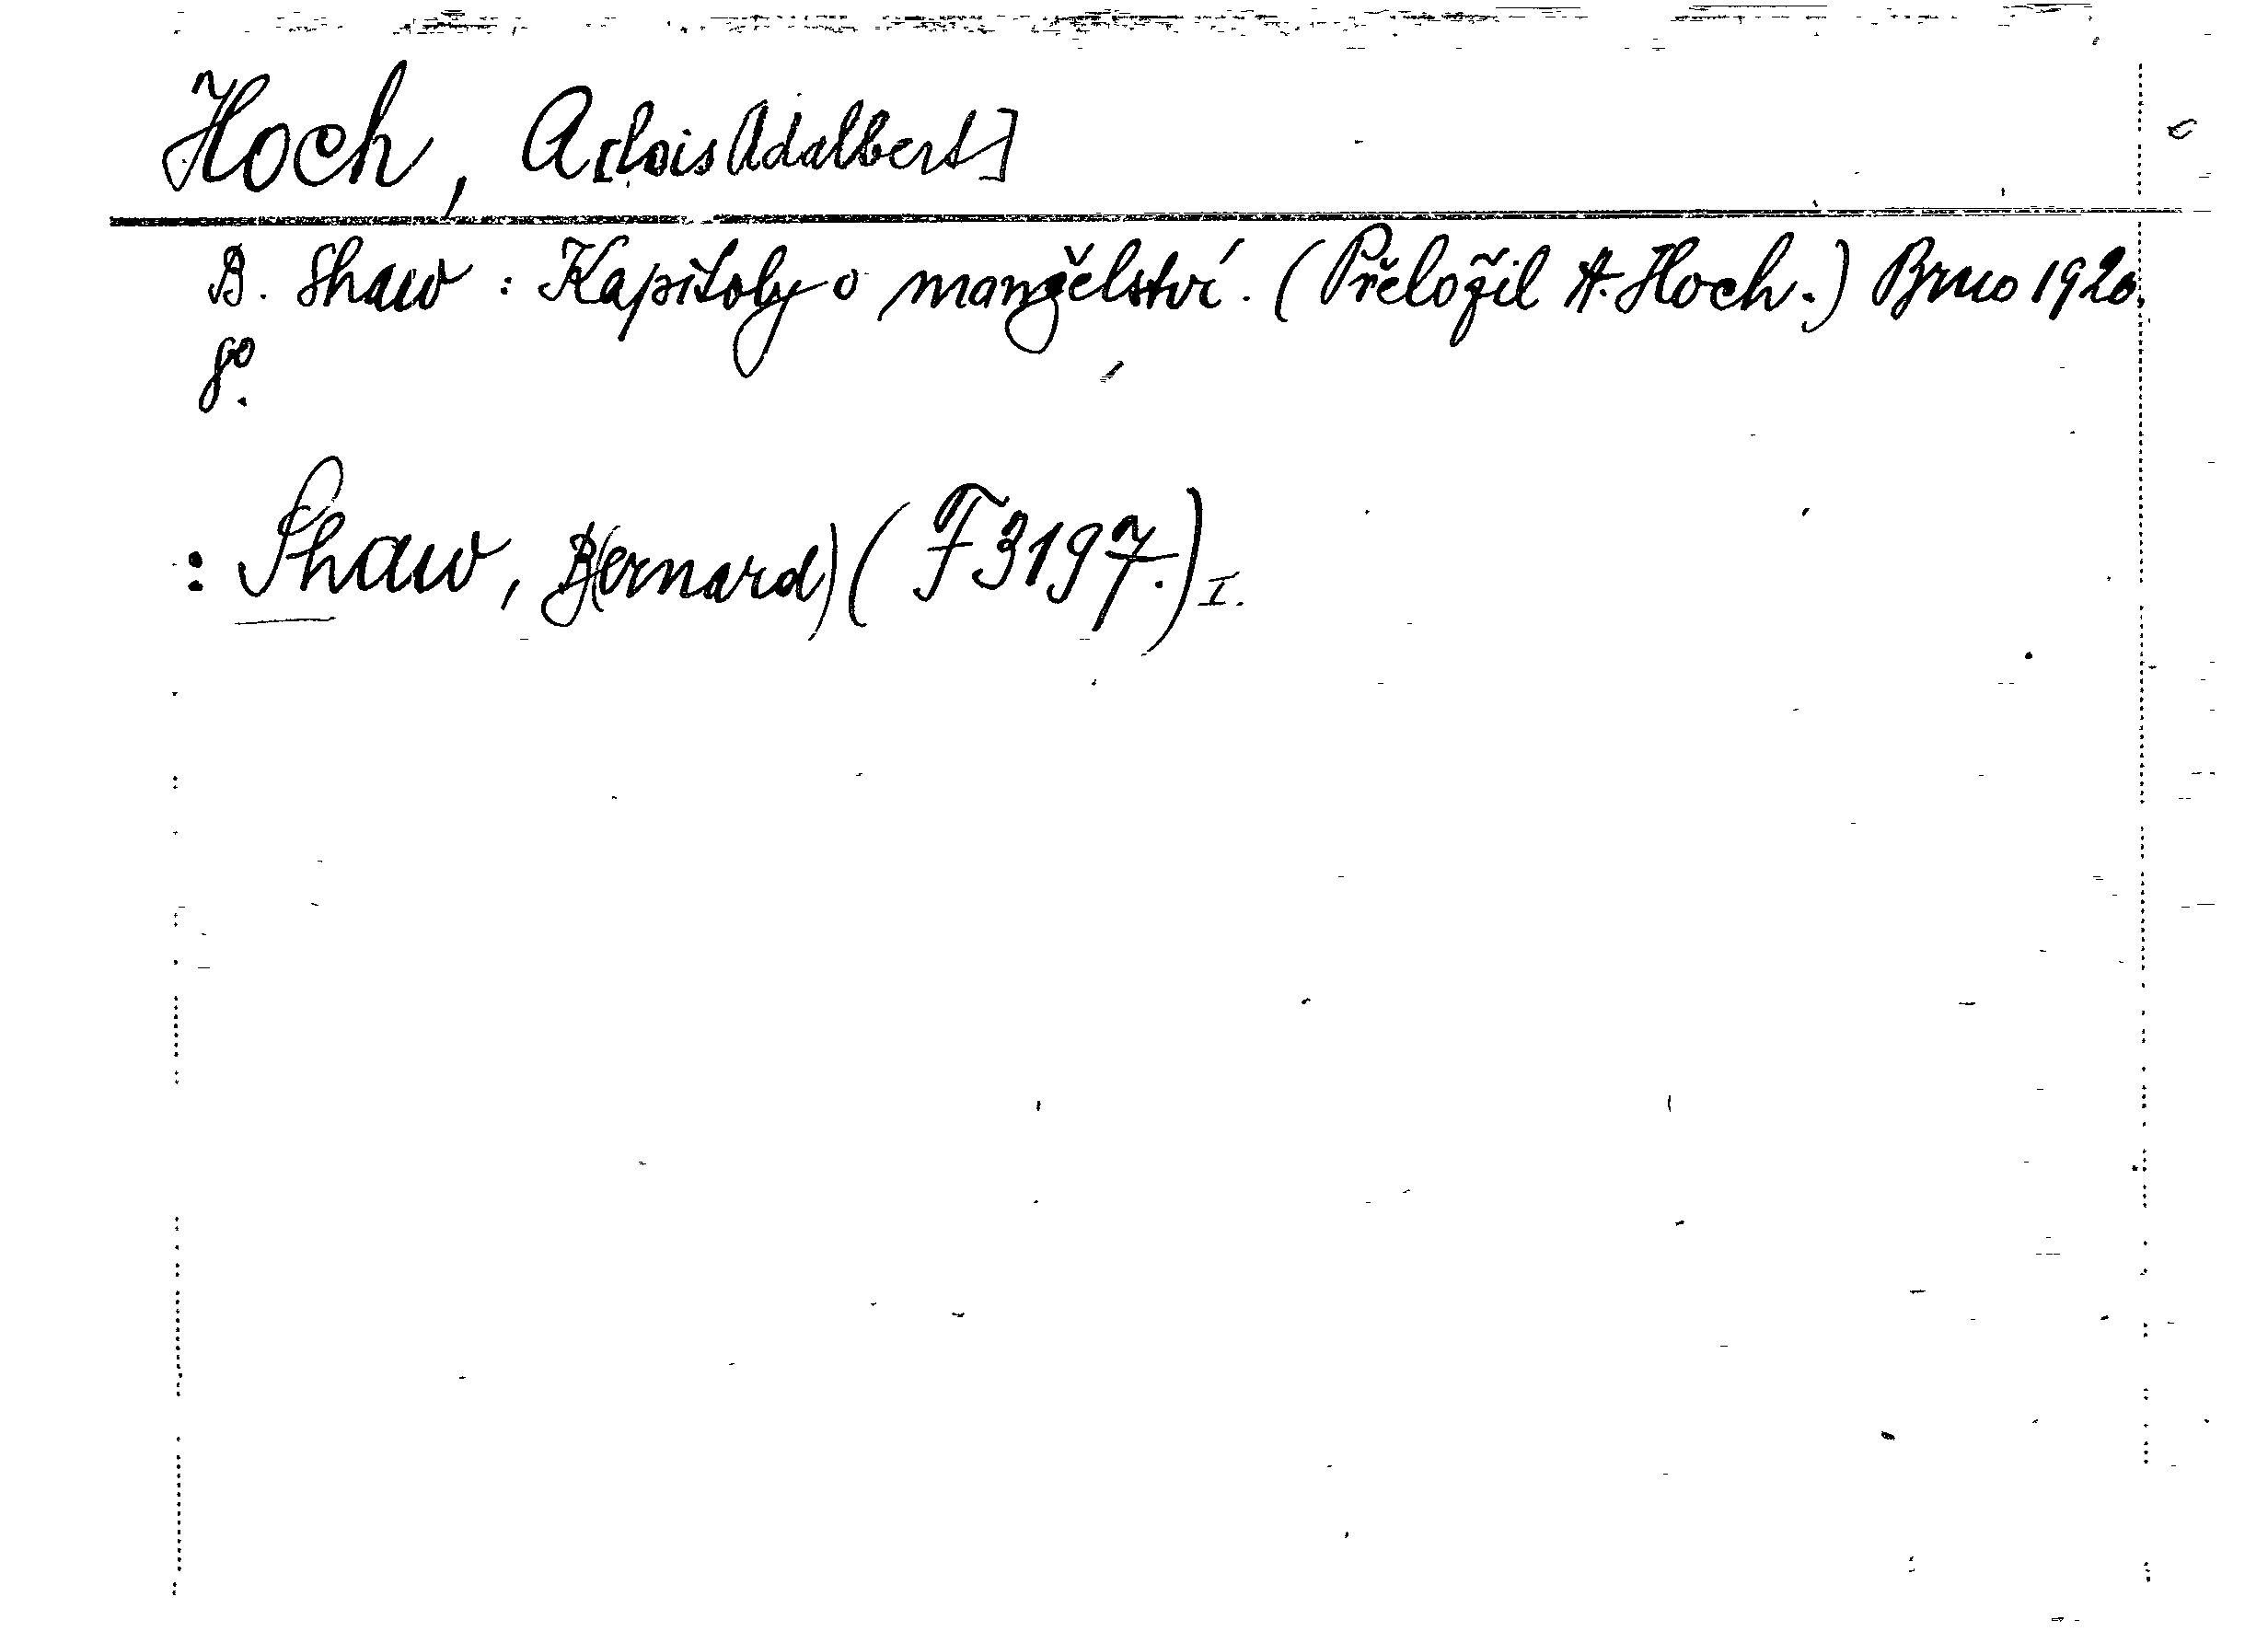 Hoch, A[lois Adalbert]
B. Shaw : Kapitoly o manželství. (Přeložil A. Hoch.) Brno 1920.
8º.
: Shaw, B(ernard) (F 3197.) I.